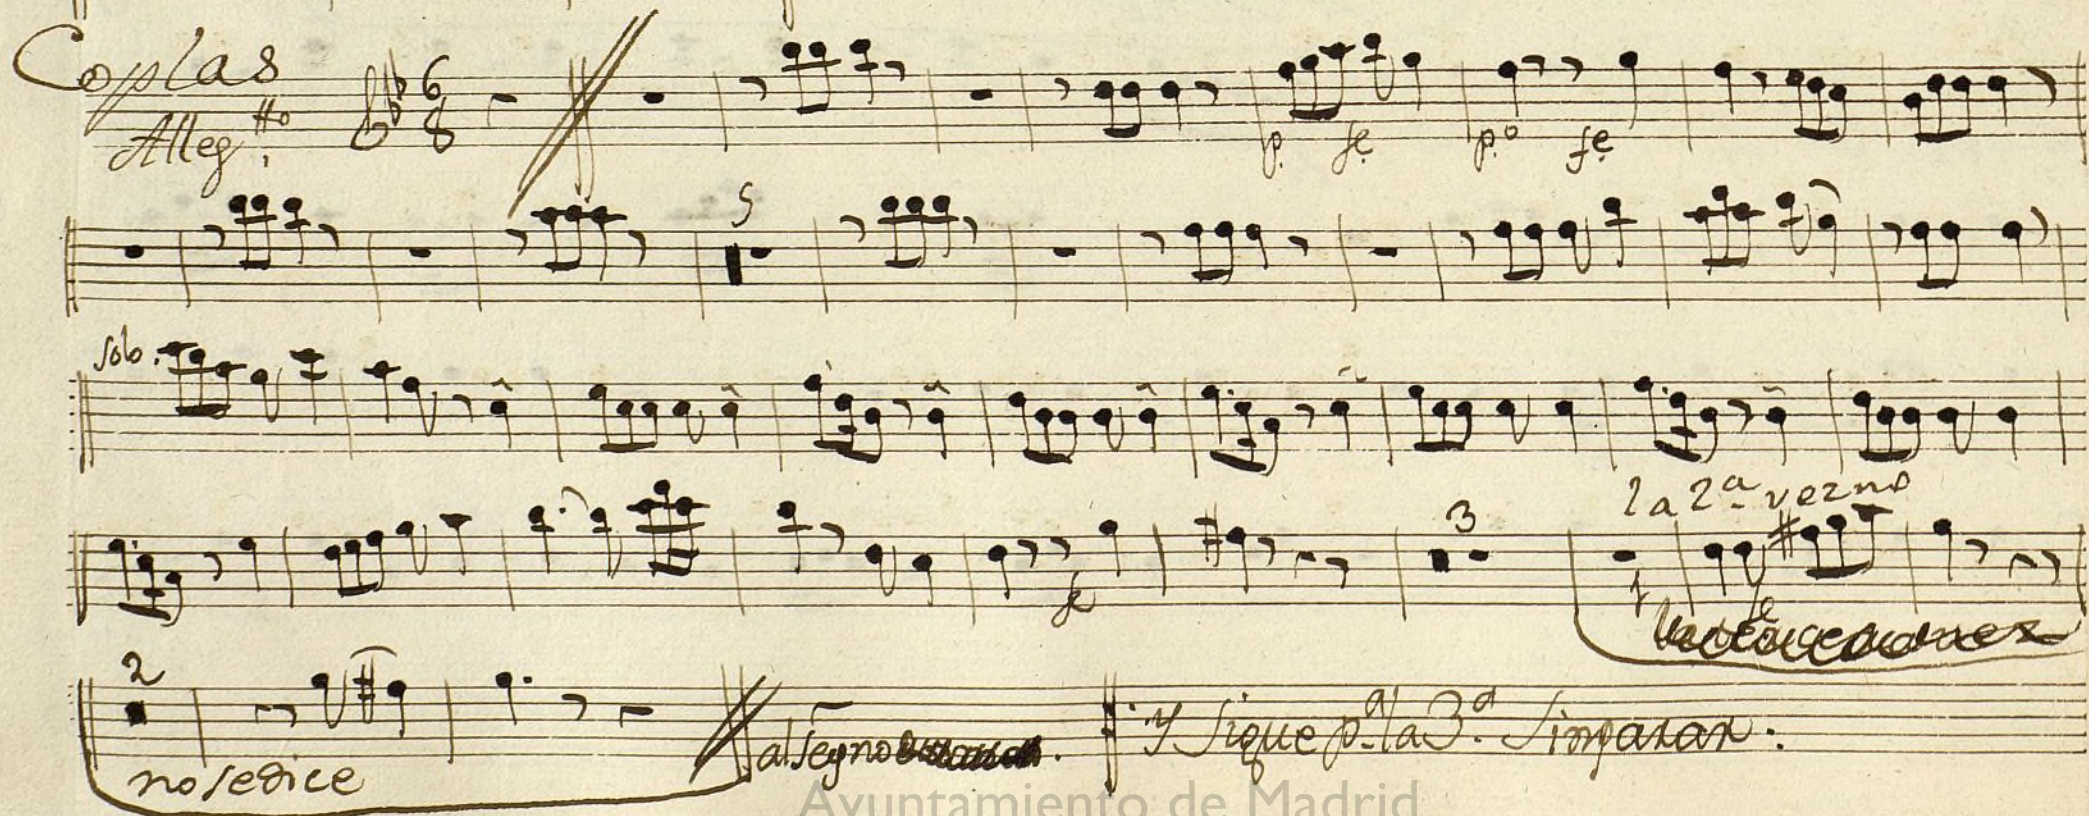 Coplas
Alleg.tto
6
8
p. fe p.o fe
5
solo.
la 2.a vez no
3
fe
2
no se dice
al segno
Y Sigue p.a la 3.a Sin parar.
Ayuntamiento de Madrid